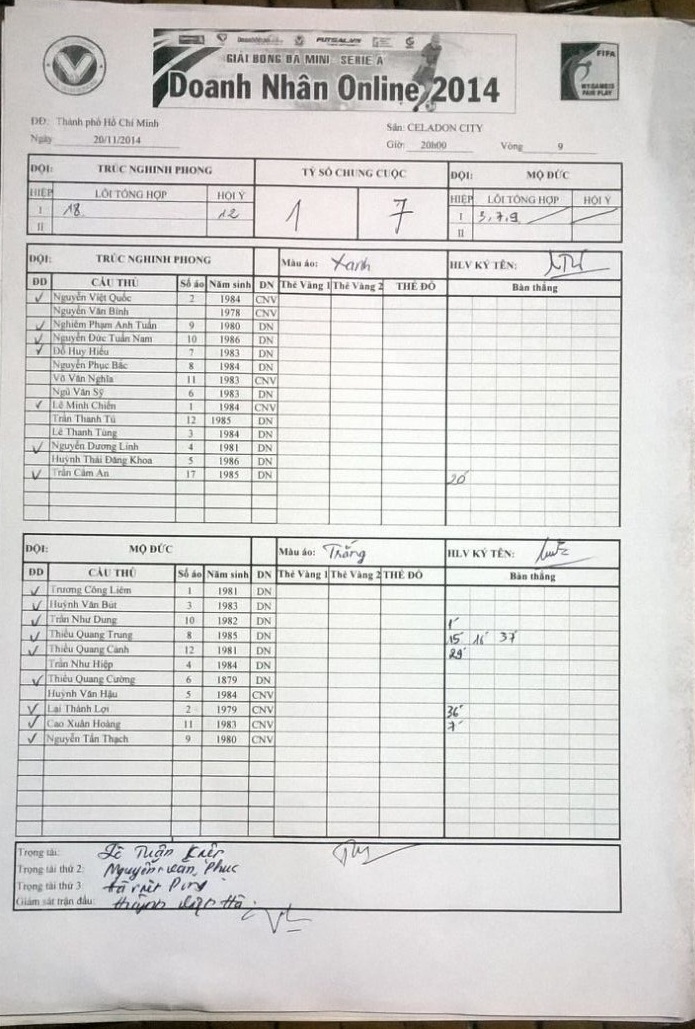 FUTSAL.VN
GIẢI BÓNG ĐÁ MINI SERIE A
Doanh Nhân Online 2014
FIFA
MY GAME IS
FAIR PLAY
DĐ: Thành phố Hồ Chí Minh
Sân: CELADON CITY
Ngày 20/11/2014
Giờ: 20h00 Vòng 9
ĐỘI: TRÚC NGHINH PHONG TỶ SỐ CHUNG CUỘC ĐỘI: MỘ ĐỨC
HIỆP LỖI TỔNG HỢP HỘI Ý 1 7 HIỆP LỖI TỔNG HỢP HỘI Ý
I 18 12 I 3,7,9
II II
ĐỘI: TRÚC NGHINH PHONG Màu áo: Xanh HLV KÝ TÊN:
DD CẦU THỦ Số áo Năm sinh DN Thẻ Vàng 1 Thẻ Vàng 2 THẺ ĐỎ Bàn thắng
✓ Nguyễn Việt Quốc 2 1984 CNV
Nguyễn Văn Bình 1978 CNV
✓ Nghiêm Phạm Anh Tuấn 9 1980 DN
✓ Nguyễn Đức Tuấn Nam 10 1986 DN
✓ Đỗ Huy Hiếu 7 1983 DN
Nguyễn Phục Bắc 8 1984 DN
Võ Văn Nghĩa 11 1983 CNV
Ngũ Văn Sỹ 6 1983 DN
✓ Lê Minh Chiến 1 1984 CNV
Trần Thanh Tú 12 1985 DN
Lê Thanh Tùng 3 1984 DN
✓ Nguyễn Dương Linh 4 1981 DN
Huỳnh Thái Đăng Khoa 5 1986 DN
✓ Trần Cẩm An 17 1985 DN 20'
ĐỘI: MỘ ĐỨC Màu áo: Trắng HLV KÝ TÊN:
DD CẦU THỦ Số áo Năm sinh DN Thẻ Vàng 1 Thẻ Vàng 2 THẺ ĐỎ Bàn thắng
✓ Trương Công Liêm 1 1981 DN
✓ Huỳnh Văn Bút 3 1983 DN
✓ Trần Như Dung 10 1982 DN 1'
✓ Thiều Quang Trung 8 1985 DN 15' 16' 37'
✓ Thiều Quang Cảnh 12 1981 DN 29'
Trần Như Hiệp 4 1984 DN
✓ Thiều Quang Cường 6 1879 DN
Huỳnh Văn Hậu 5 1984 CNV
✓ Lại Thành Lợi 2 1979 CNV 36'
✓ Cao Xuân Hoàng 11 1983 CNV 7'
✓ Nguyễn Tấn Thạch 9 1980 CNV
Trọng tài: Lê Tuấn
Trọng tài thứ 2: Nguyễn Văn Phúc
Trọng tài thứ 3:
Giám sát trận đấu: Huỳnh Hà